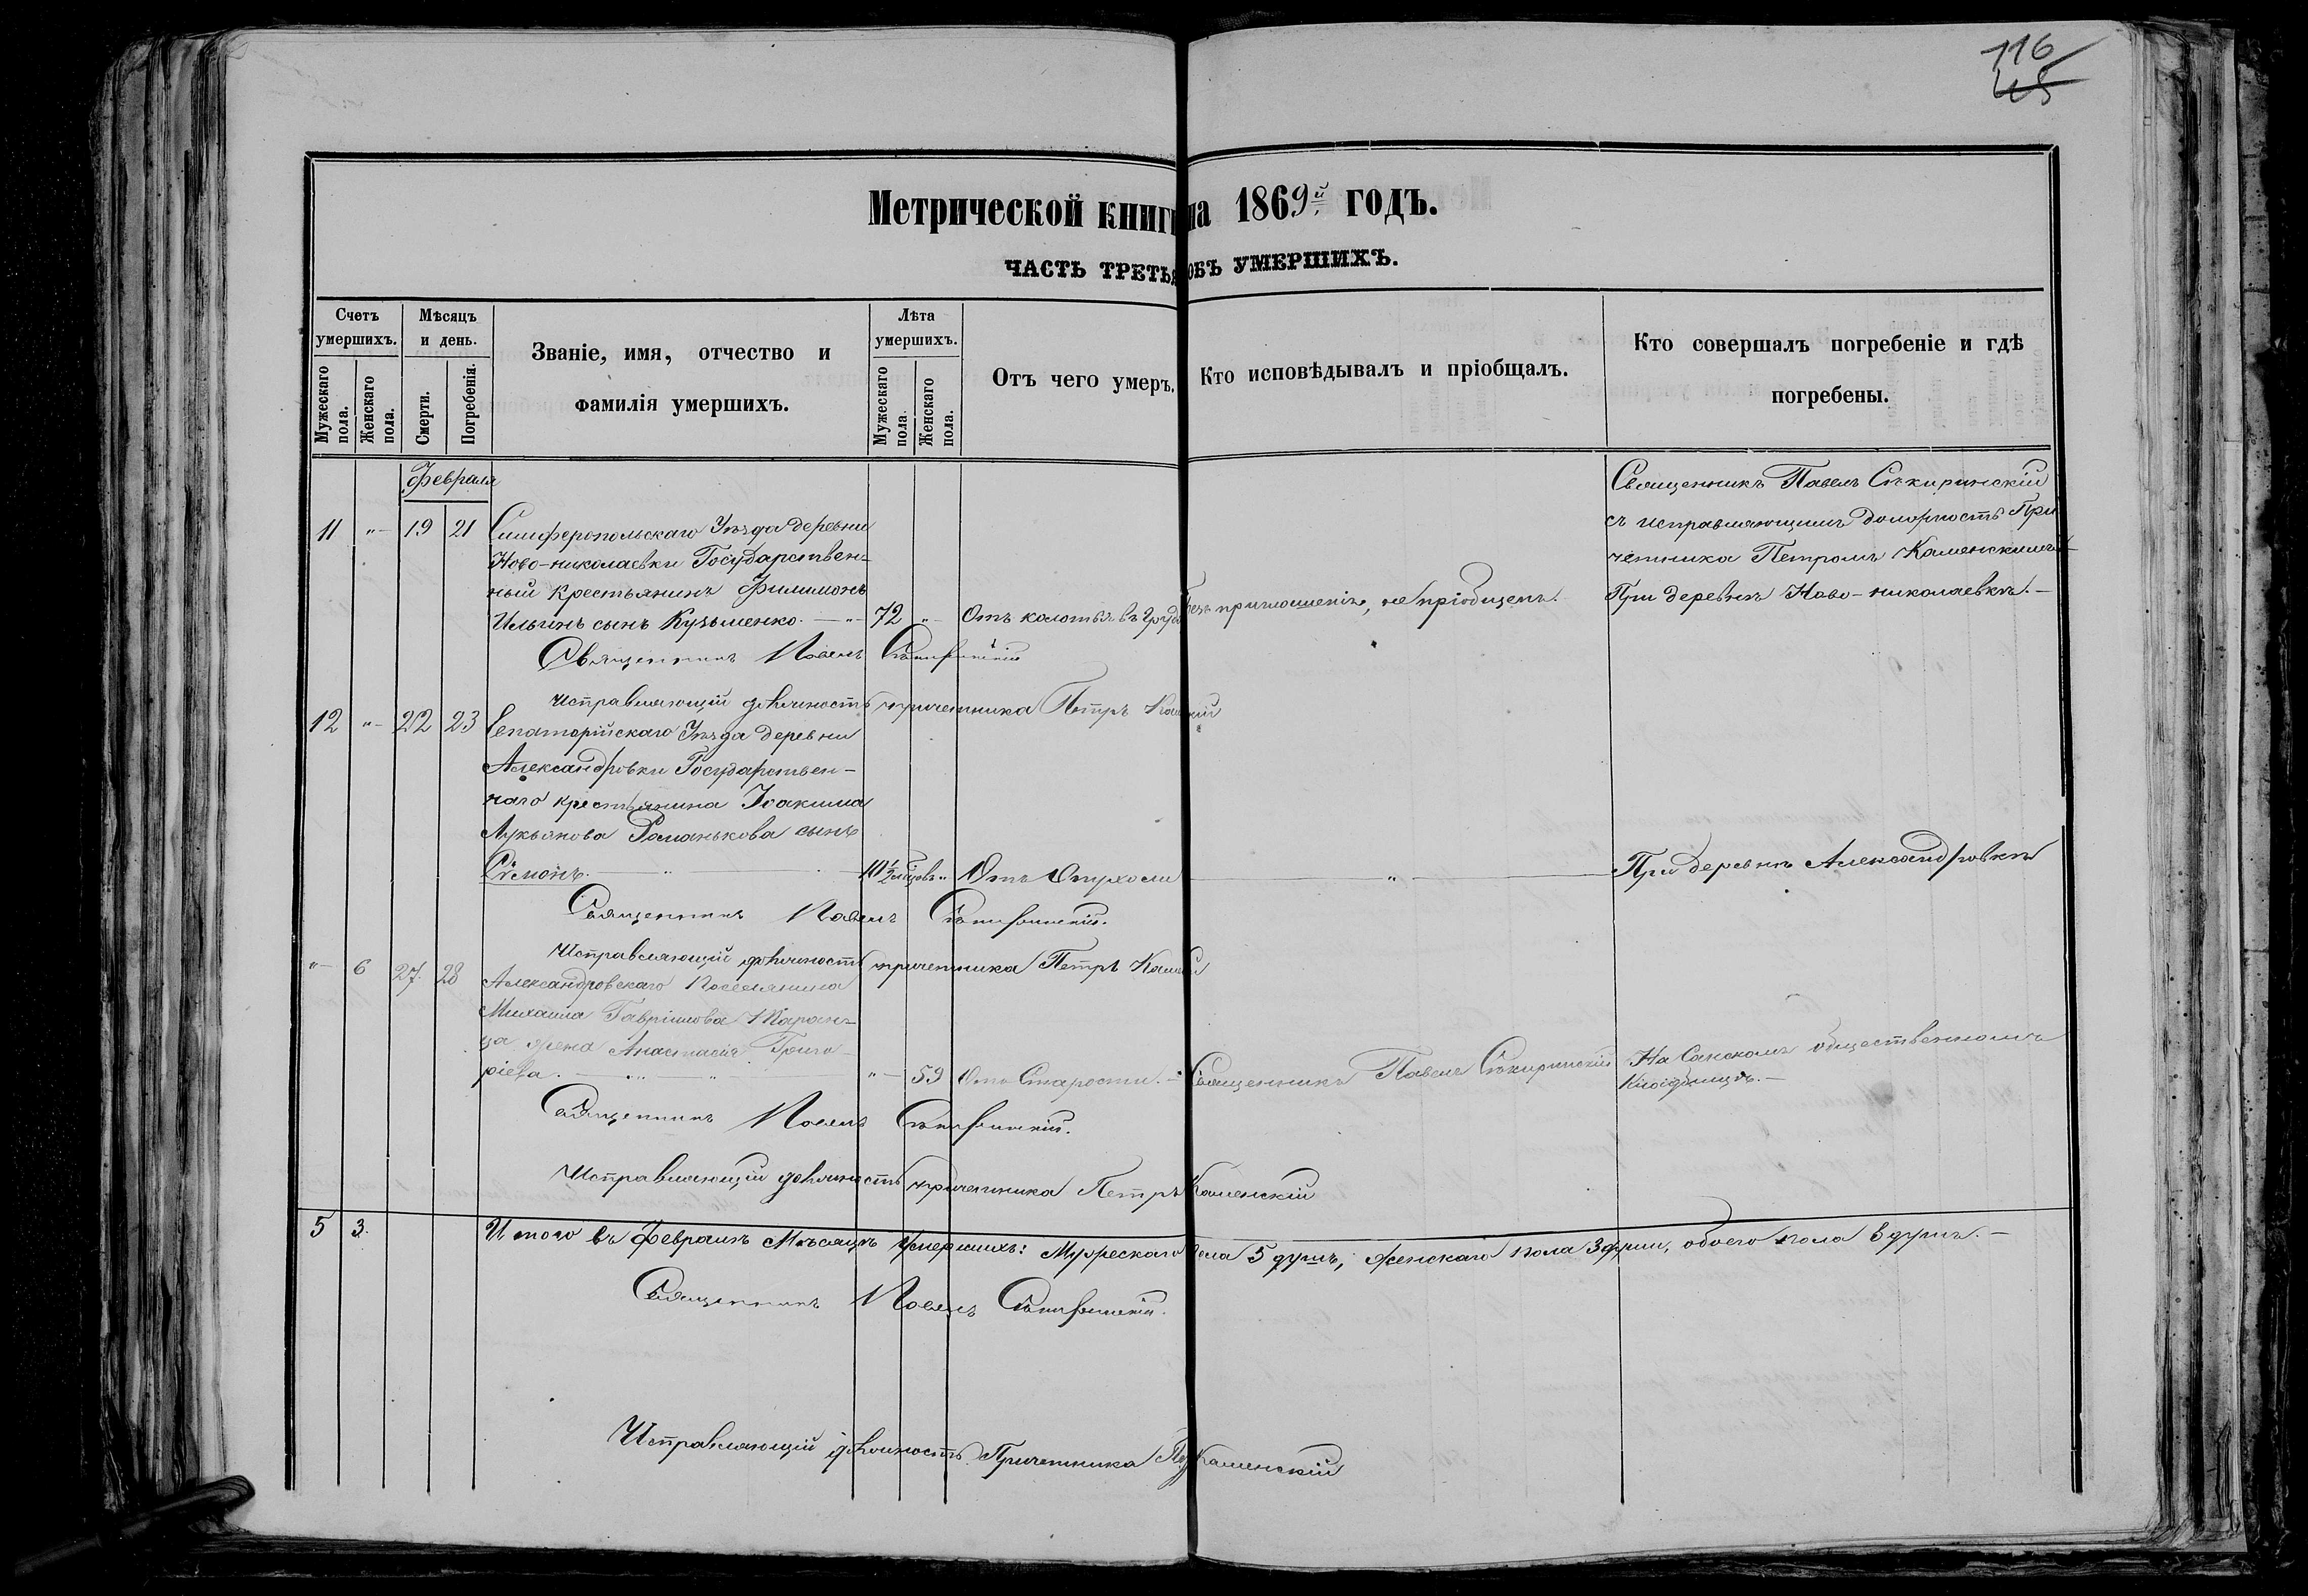 116
45
Метрической книги на 1869й годъ.
ЧАСТЬ ТРЕТЬЯ ОБЪ УМЕРШИХЪ.
Счетъ умершихъ.
Мужескаго пола.
Женскаго пола.
Мѣсяцъ и день.
Смерти.
Погребенія.
Званіе, имя, отчество и
фамилія умершихъ.
Лѣта умершихъ.
Мужескаго пола.
Женскаго пола.
Отъ чего умеръ.
Кто исповѣдывалъ и пріобщалъ.
Кто совершалъ погребеніе и гдѣ
погребены.
Февраля
11 "- 19 21 Симферопольскаго Уѣзда деревни
Ново-николаевки Государствен-
ный крестьянинъ Филимонъ
Ильинъ сынъ Кузьменко. — "- 72 "- Отъ колотья въ груди Безъ приглашенія, не пріобщенъ.
Священникъ Павелъ Сѣкиринскій
съ исправляющимъ должность При
четника Петромъ Каменскимъ
При деревнѣ Ново-николаевкѣ. —
Священникъ Павелъ Сѣкиринскій
Исправляющій должность причетника Петръ Каменскій
12 "- 22 23 Евпаторійскаго Уѣзда деревни
Александровки Государствен-
наго крестьянина Іоакима
Лукьянова Романькова сынъ
Сѵмонъ. — " — 10 1/2 мѣсцовъ " Отъ Опухоли — " — При деревнѣ Александровкѣ
Священникъ Павелъ Сѣкиринскій.
Исправляющій должность причетника Петръ Каменскій
"- 6 27 28 Александровскаго Поселянина
Михаила Гавріилова
жена Анастасія Григо-
ріева. — " — " "- 59 Отъ Старости. — Священникъ Павелъ Сѣкиринскій На Сакскомъ общественномъ
Кладбищѣ. —
Священникъ Павелъ Сѣкиринскій.
Исправляющій должность причетника Петръ Каменскій
5 3. Итого въ Февралѣ Мѣсяцѣ Умершихъ: Мужескаго пола 5 душъ, женскаго пола 3 души, обоего пола 8 душъ. —
Священникъ Павелъ Сѣкиринскій.
Исправляющій должность Причетника Петръ Каменскій